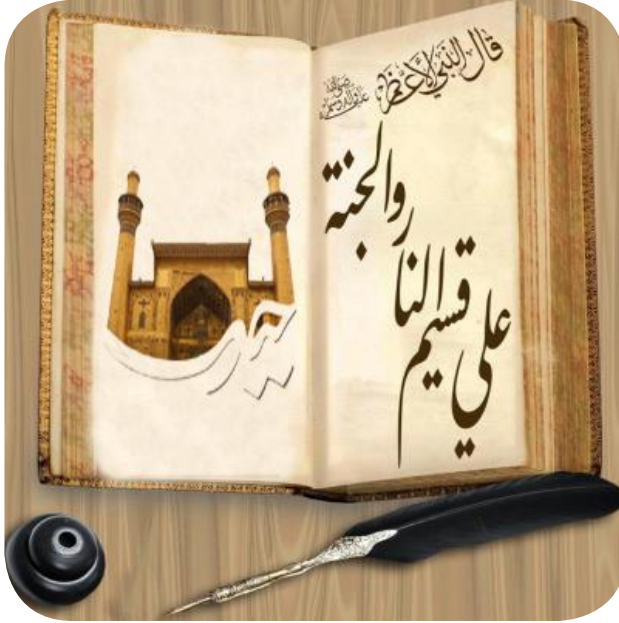 قال النبي الأعظم
صلى الله عليه وآله وسلم
علي قسيم النار والجنة
حيدر